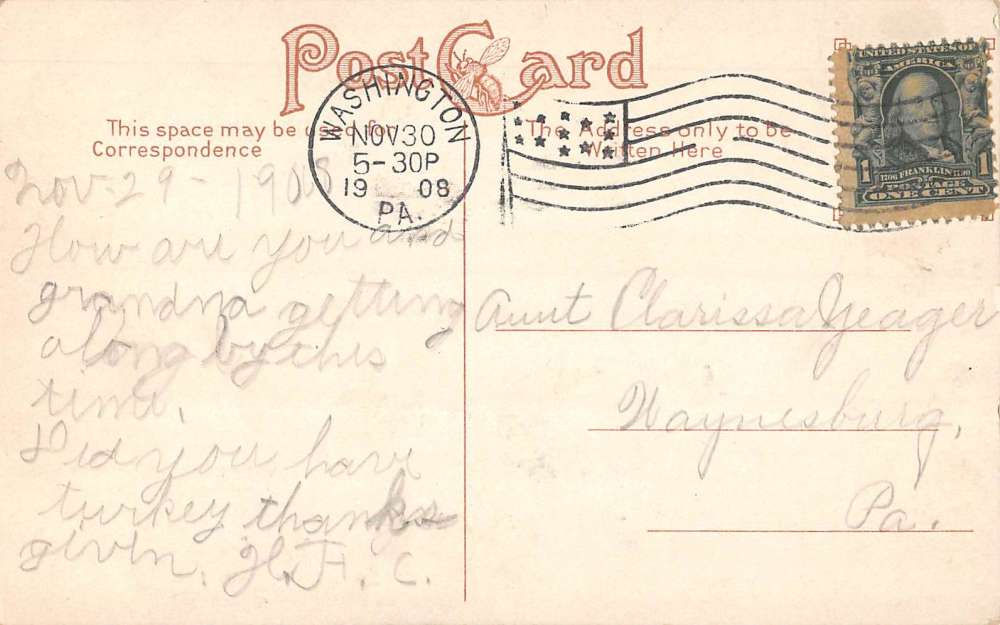 Post Card
This space may be used for
Correspondence
The Address only to be
Written Here
WASHINGTON
NOV 30
5-30P
19 08
PA.
UNITED STATES OF
AMERICA
1 1
1706 FRANKLIN 1790
POSTAGE
ONE CENT
Nov-29-1908
How are you and
grandma getting
along by this
time,
Did you have
turkey thanks
givin. H. F. C.
Aunt Clarissa Yeager
Waynesburg,
Pa.